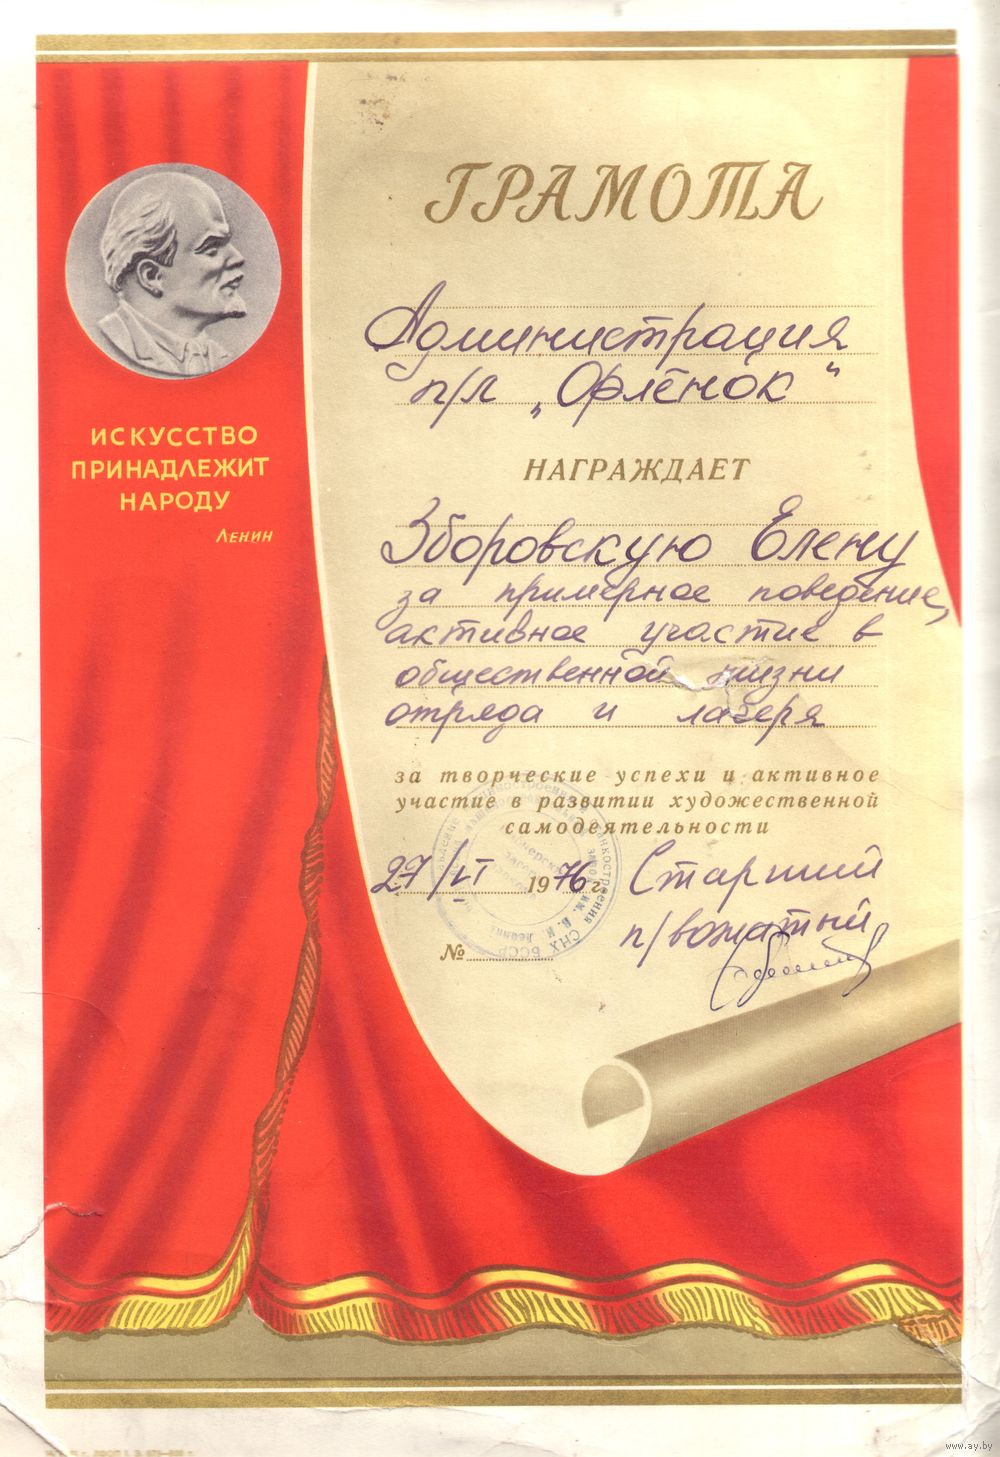 ГРАМОТА
ИСКУССТВО
ПРИНАДЛЕЖИТ
НАРОДУ
ЛЕНИН
Администрация
п/л „Орлёнок"
НАГРАЖДАЕТ
Зборовскую Елену
за примерное поведение,
активное участие в
общественной жизни
отряда и лагеря
за творческие успехи и активное
участие в развитии художественной
самодеятельности
27/VI 1976 г.
Старший
п/вожатый
№
СНХ БССР
www.ay.by